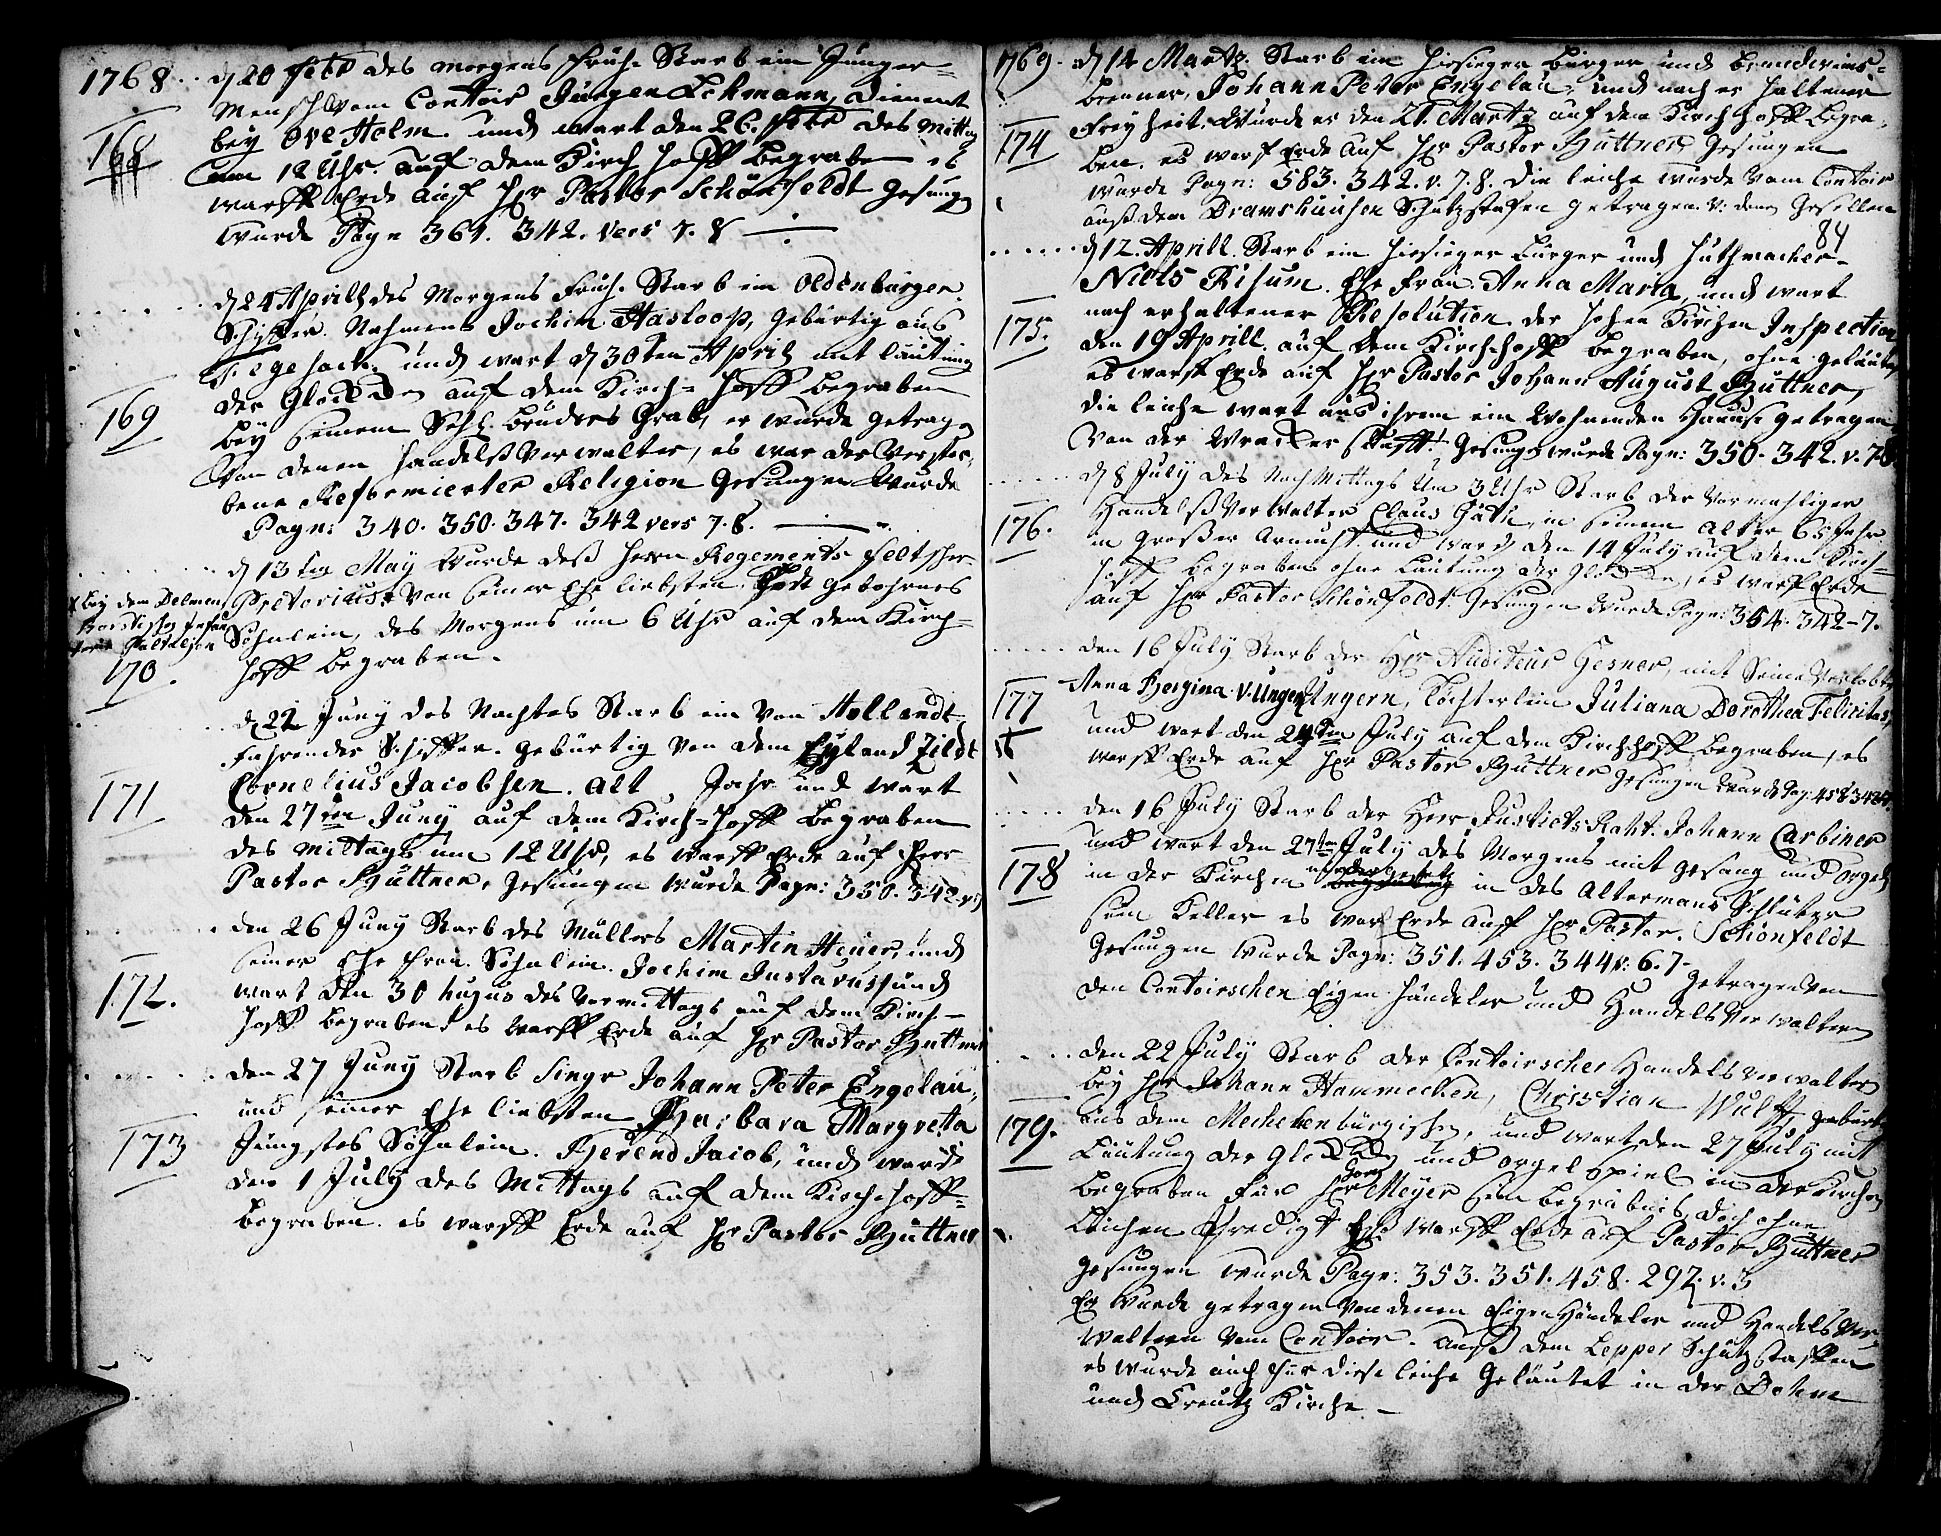 1768. d 20 Feb des morgens Früh Starb ein Junger
Mensch vom Contoir Jürgen Lehmann, dienent
bey Ove Holm. und wart den 26. Feb des Mittag
168
um 12 Uhr. auf dem Kirch Hoff begraben es
warff Erde auf Hr Pastor Schönfeldt Gesung
Wurde Pagn 361. 342. vers 7. 8
d 24 Aprill des Morgens Früh Starb ein Oldenburger
Schiffer. Nahmens Jochim Hasloop, Gebürtig aus
Fegesack. und wart d 30ten April mit läutung
der Glocken auf dem Kirch-Hoff begraben
169
bey seinem Sehl. Bruders Grab, er wurde getragen
von denen Handelß Verwalter, es war der Verstor-
bene Reformierter Religion Gesungen Wurde
Pagn: 340. 350. 347. 342 vers 7. 8.
d 13ten May Wurde deß Herrn Regements Feltscher
Pretorius. Von seiner Ehe liebsten Todt gebohrnes
x bey dem Delmen
Horstischen Infan
terie Battaljon
Söhnlein, des Morgens um 6 Uhr auf dem Kirch-
170.
Hoff begraben.
d 22 Juny des Nachtes Starb ein von Hollandt
fahrender Schiffer. gebürtig von dem Eyland Zildt
Cornelius Jacobsen. alt Jahr und wart
171
den 27ten Juny auf dem Kirch-Hoff begraben
des mittags um 12 Uhr, es warff Erde auf Herr
Pastor Büttner, Gesungen wurde Pagn: 350. 342. v 7
den 26 Juny Starb des Müllers Martin Heuer, und
seiner Ehe Frau Söhnlein. Jochim Justavus, und
172.
wart den 30 hujus des Vormittags auf dem Kirch-
Hoff begraben es warff Erde auf Hr Pastor Büttner
den 27 Juny Starb Singr Johann Peter Engelau,
und seiner Ehe liebsten Barbara Margretta
173
Jüngstes Söhnlein. Berend Jacob, und wurde
den 1 July des Mittags auf dem Kirch Hoff-
begraben. es warff Erde auf Hr Pastor Büttner
1769. d 14 Martz. Starb ein hiesieger Bürger und Brandweins-
Brenner, Johann Peter Engelau, und nach er haltener
Freyheit. Wurde er den 21. Martz auf dem Kirch Hoff begra-
174
ben. es warf Erde auf Hr Pastor Büttner Gesungen
wurde Pagn: 583. 342. v. 7. 8. die leiche wurde vom Contoir
auß dem Bramshausen Schützstafen getragen v: denen Gesellen
84
d 12. Aprill. Starb ein hiesieger Bürger und Huthmacher
Niels Risum. Ehe Frau. Anna Maria, und wart
nach erhaltener Resolution der hohen Kirchen Inspection
175.
den 19 Aprill. auf dem Kirchhoff begraben, ohne geläute
es warff Erde auf Hr Pastor Johann August Büttner,
die leiche wart aus ihrem ein Wohnenden Hause getragen
von der Wracker schafft. Gesungn wurde Pagn: 350. 342. v. 7. 8
d 8 July des Nach Mittags Um 3 Uhr Starb der vormahliger
Handelß Verwalter Claus Gäth, in seinem alter 65 Jahr
176.
in großer Armuth und ward den 14 July auf dem Kirch-
hoff begraben ohne Läutung der Glocken, es warff Erde
auf Hr Pastor Schönfeldt. Gesungen Wurde Pagn: 354. 342-7.
den 16 July Starb der Hr Auditeur Gesner, mit Seine Verlobte
Anna Bergina v. Ungern, Töchterlein Juliana Dorothea Felicitas,
177
und wart den 24ten July auf dem Kirchhoff begraben, es
warff Erde auf Hr Pastor Büttner Gesungen Wurde Pag: 458 342 v 7
den 16 July Starb der Herr Justicts Raht. Johann Carbiner
und wart den 27ten July des Morgens mit Gesang und orgel
178
in der Kirchen niedergesetz in des Altermans Schlüter
sein Keller es warf Erde auff Hr Pastor. Schönfeldt
Gesungen wurde Pagn: 351. 453. 344 v: 6. 7- getragen von
den Contoirschen Eigen Händeler und Handels Verwaltern
den 22 July Starb der Contoirscher Handels verwalter
bey Hr Johann Hammecken, Christian Wulff gebürt
179.
aus dem Mecklenburgischen, und wart den 27 July mit
Läutung der Glocken und orgel spiel in der Kirchen
begraben für Hr Meyer sein begräbnis, doch ohne
Leichen Predigt Es warff Erde auf Pastor Büttner
gesungen wurde Pagn: 353. 351. 458. 292. v. 3
Er wurde getragen von denen Eigen Händeler und Handels Ver-
waltern vom Contoir. auß dem Lepper Schützstaffen
es wurde auch für diese leiche Geläutet in der Dohm
und Creutz Kirche.